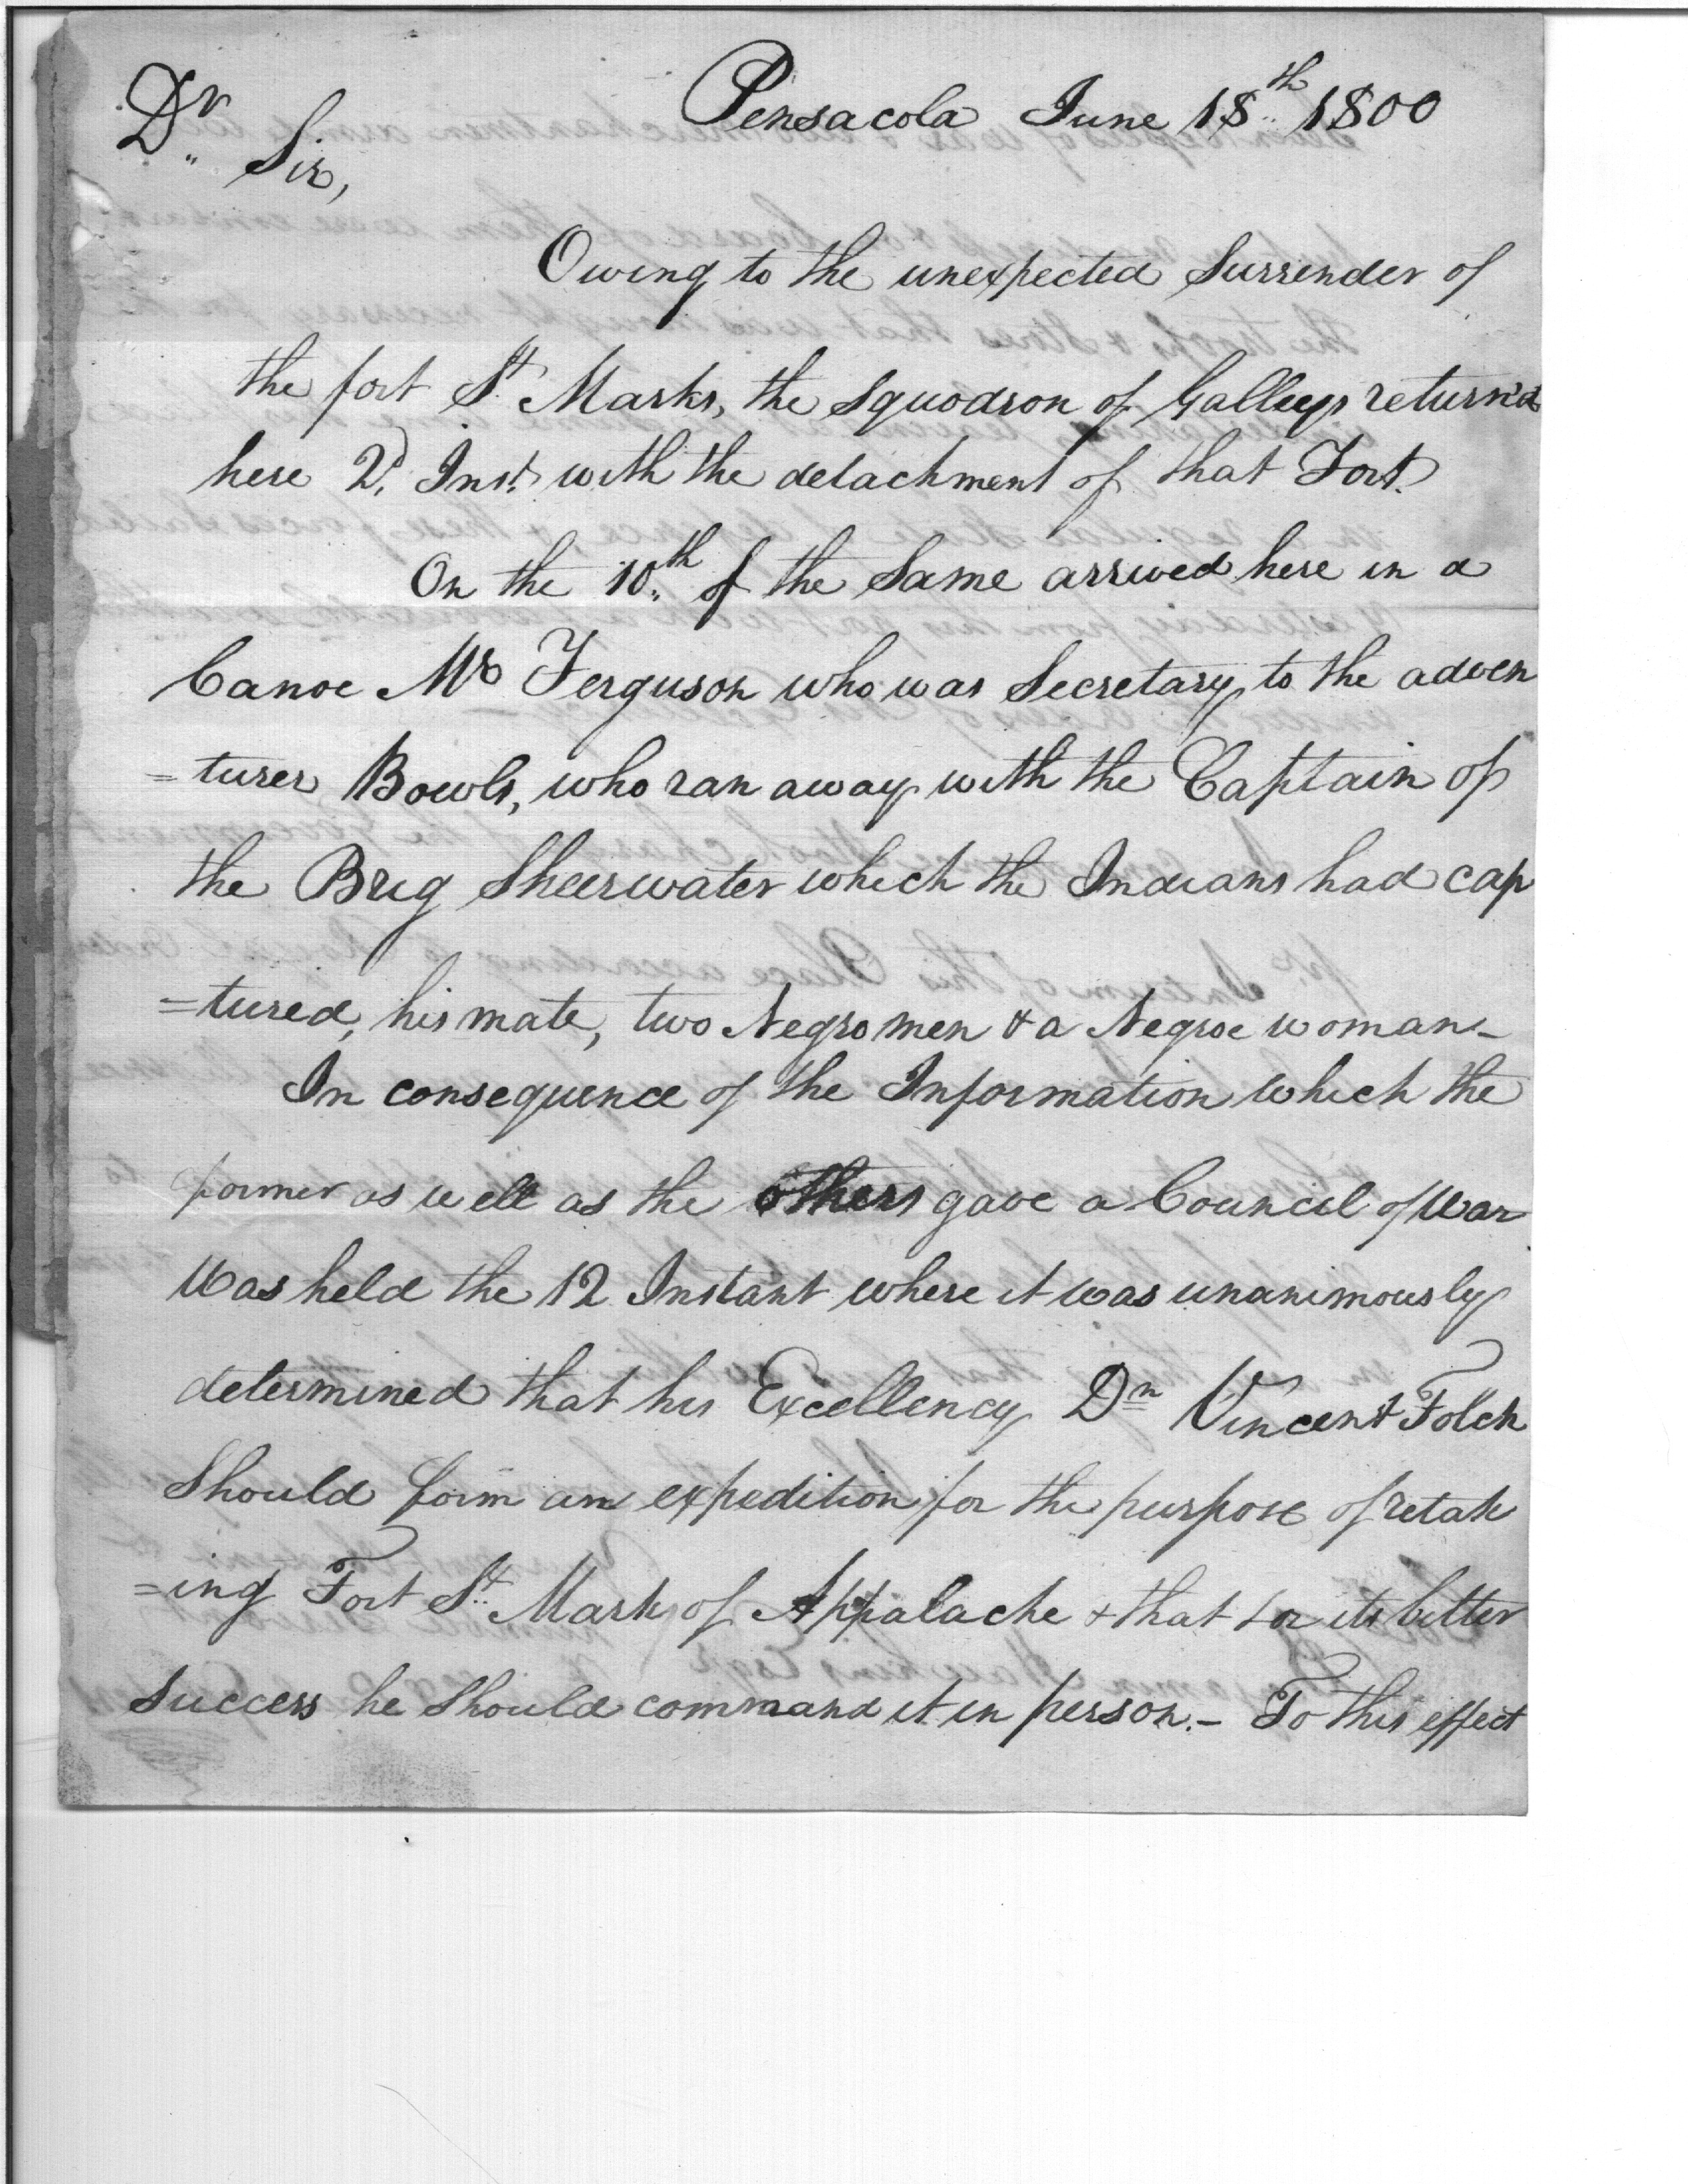 Pensacola June 18th 1800
Dr Sir,
Owing to the unexpected Surrender of
the fort St Marks, the Squodron of Galleys return'd
here 2d Inst. with the detachment of that Fort.
On the 10th of the Same arrived here in a
Canoe Mr Ferguson who was Secretary to the adven
=turer Bowls, who ran away with the Captain of
the Brig Sheerwater which the Indians had cap
=tured, his mate, two Negro men & a Negroe woman-
In consequence of the Information which the
former as well as the others gave a Council of War
was held the 12 Instant where it was unanimously
determined that his Excellency Dn Vincent Folch
Should form an expedition for the purpose of retak
=ing Fort St Marks of Appalache & that for its better
Success he Should command it in person.- To this effect